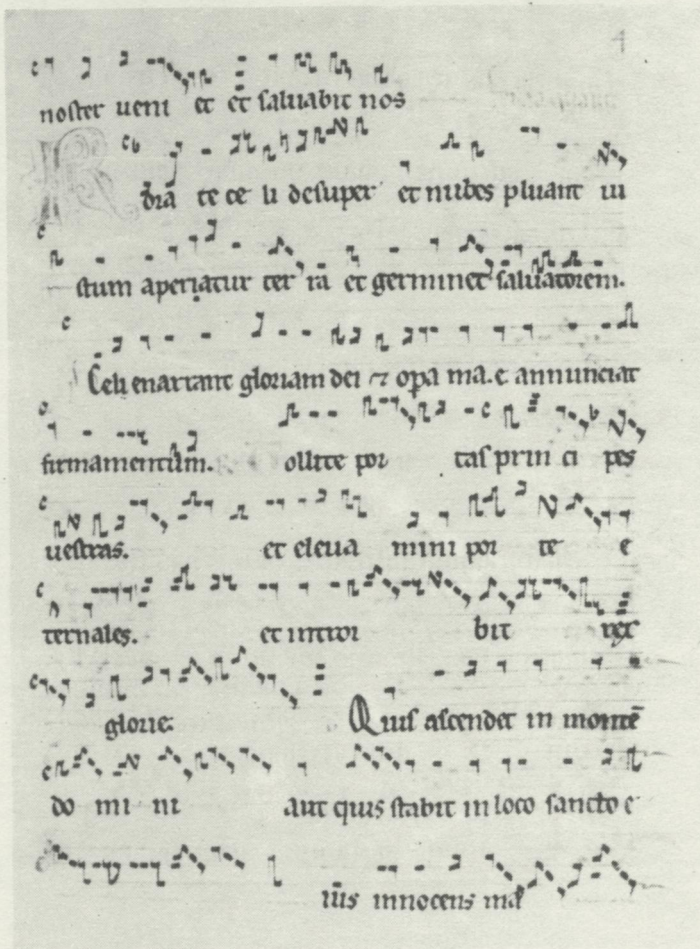 4
noster ueni et et saluabit nos
Rora te ce li desuper et nubes pluant iu
stum aperiatur ter ra et germinet saluatorem.
Celi enarrant gloriam dei ⁊ opa ma. e annunciat
firmamentum. ollite por tas prin ci pes
uestras. et eleua mini por te e
ternales. et intror bit rex
glorie. Quis ascendet in montē
do mi ni aut quis stabit in loco sancto e
ius innocens ma